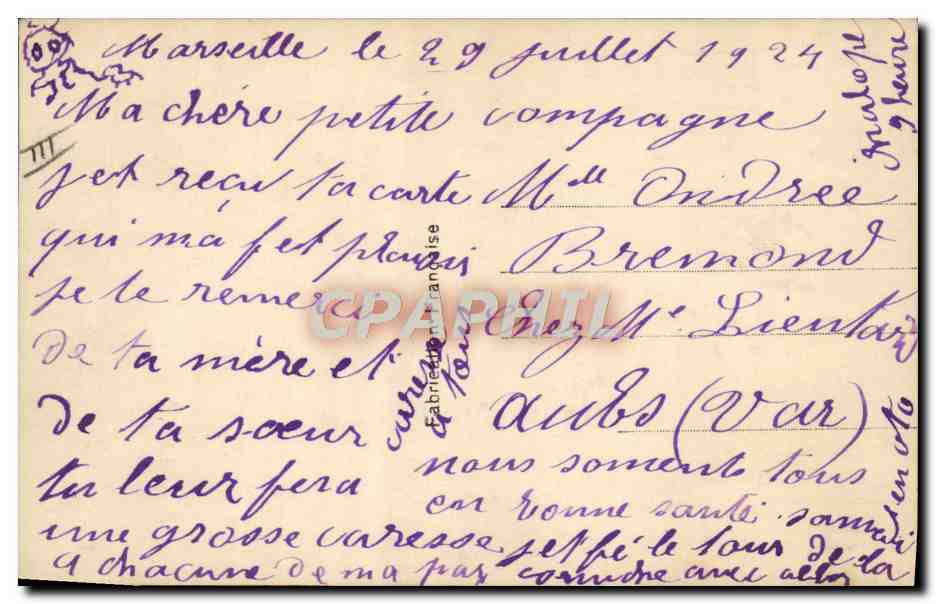 Marseille le 29 juillet 1924
Ma chère petite compagne
jet reçu ta carte
qui ma fet plaisir
je te remerci
de ta mère et
de ta sœur
tu leur fera
une grosse caresse
a chacune de ma par
Mlle Andrée
Bremond
chez Mr Lieutard
Aubs (Var)
nous soment tous
en bonne santé. samedi
jet fé le tour de la
corniche avec
en oto
caresse
a tous
9 heure
Fabrication Française
CPAPHIL
III